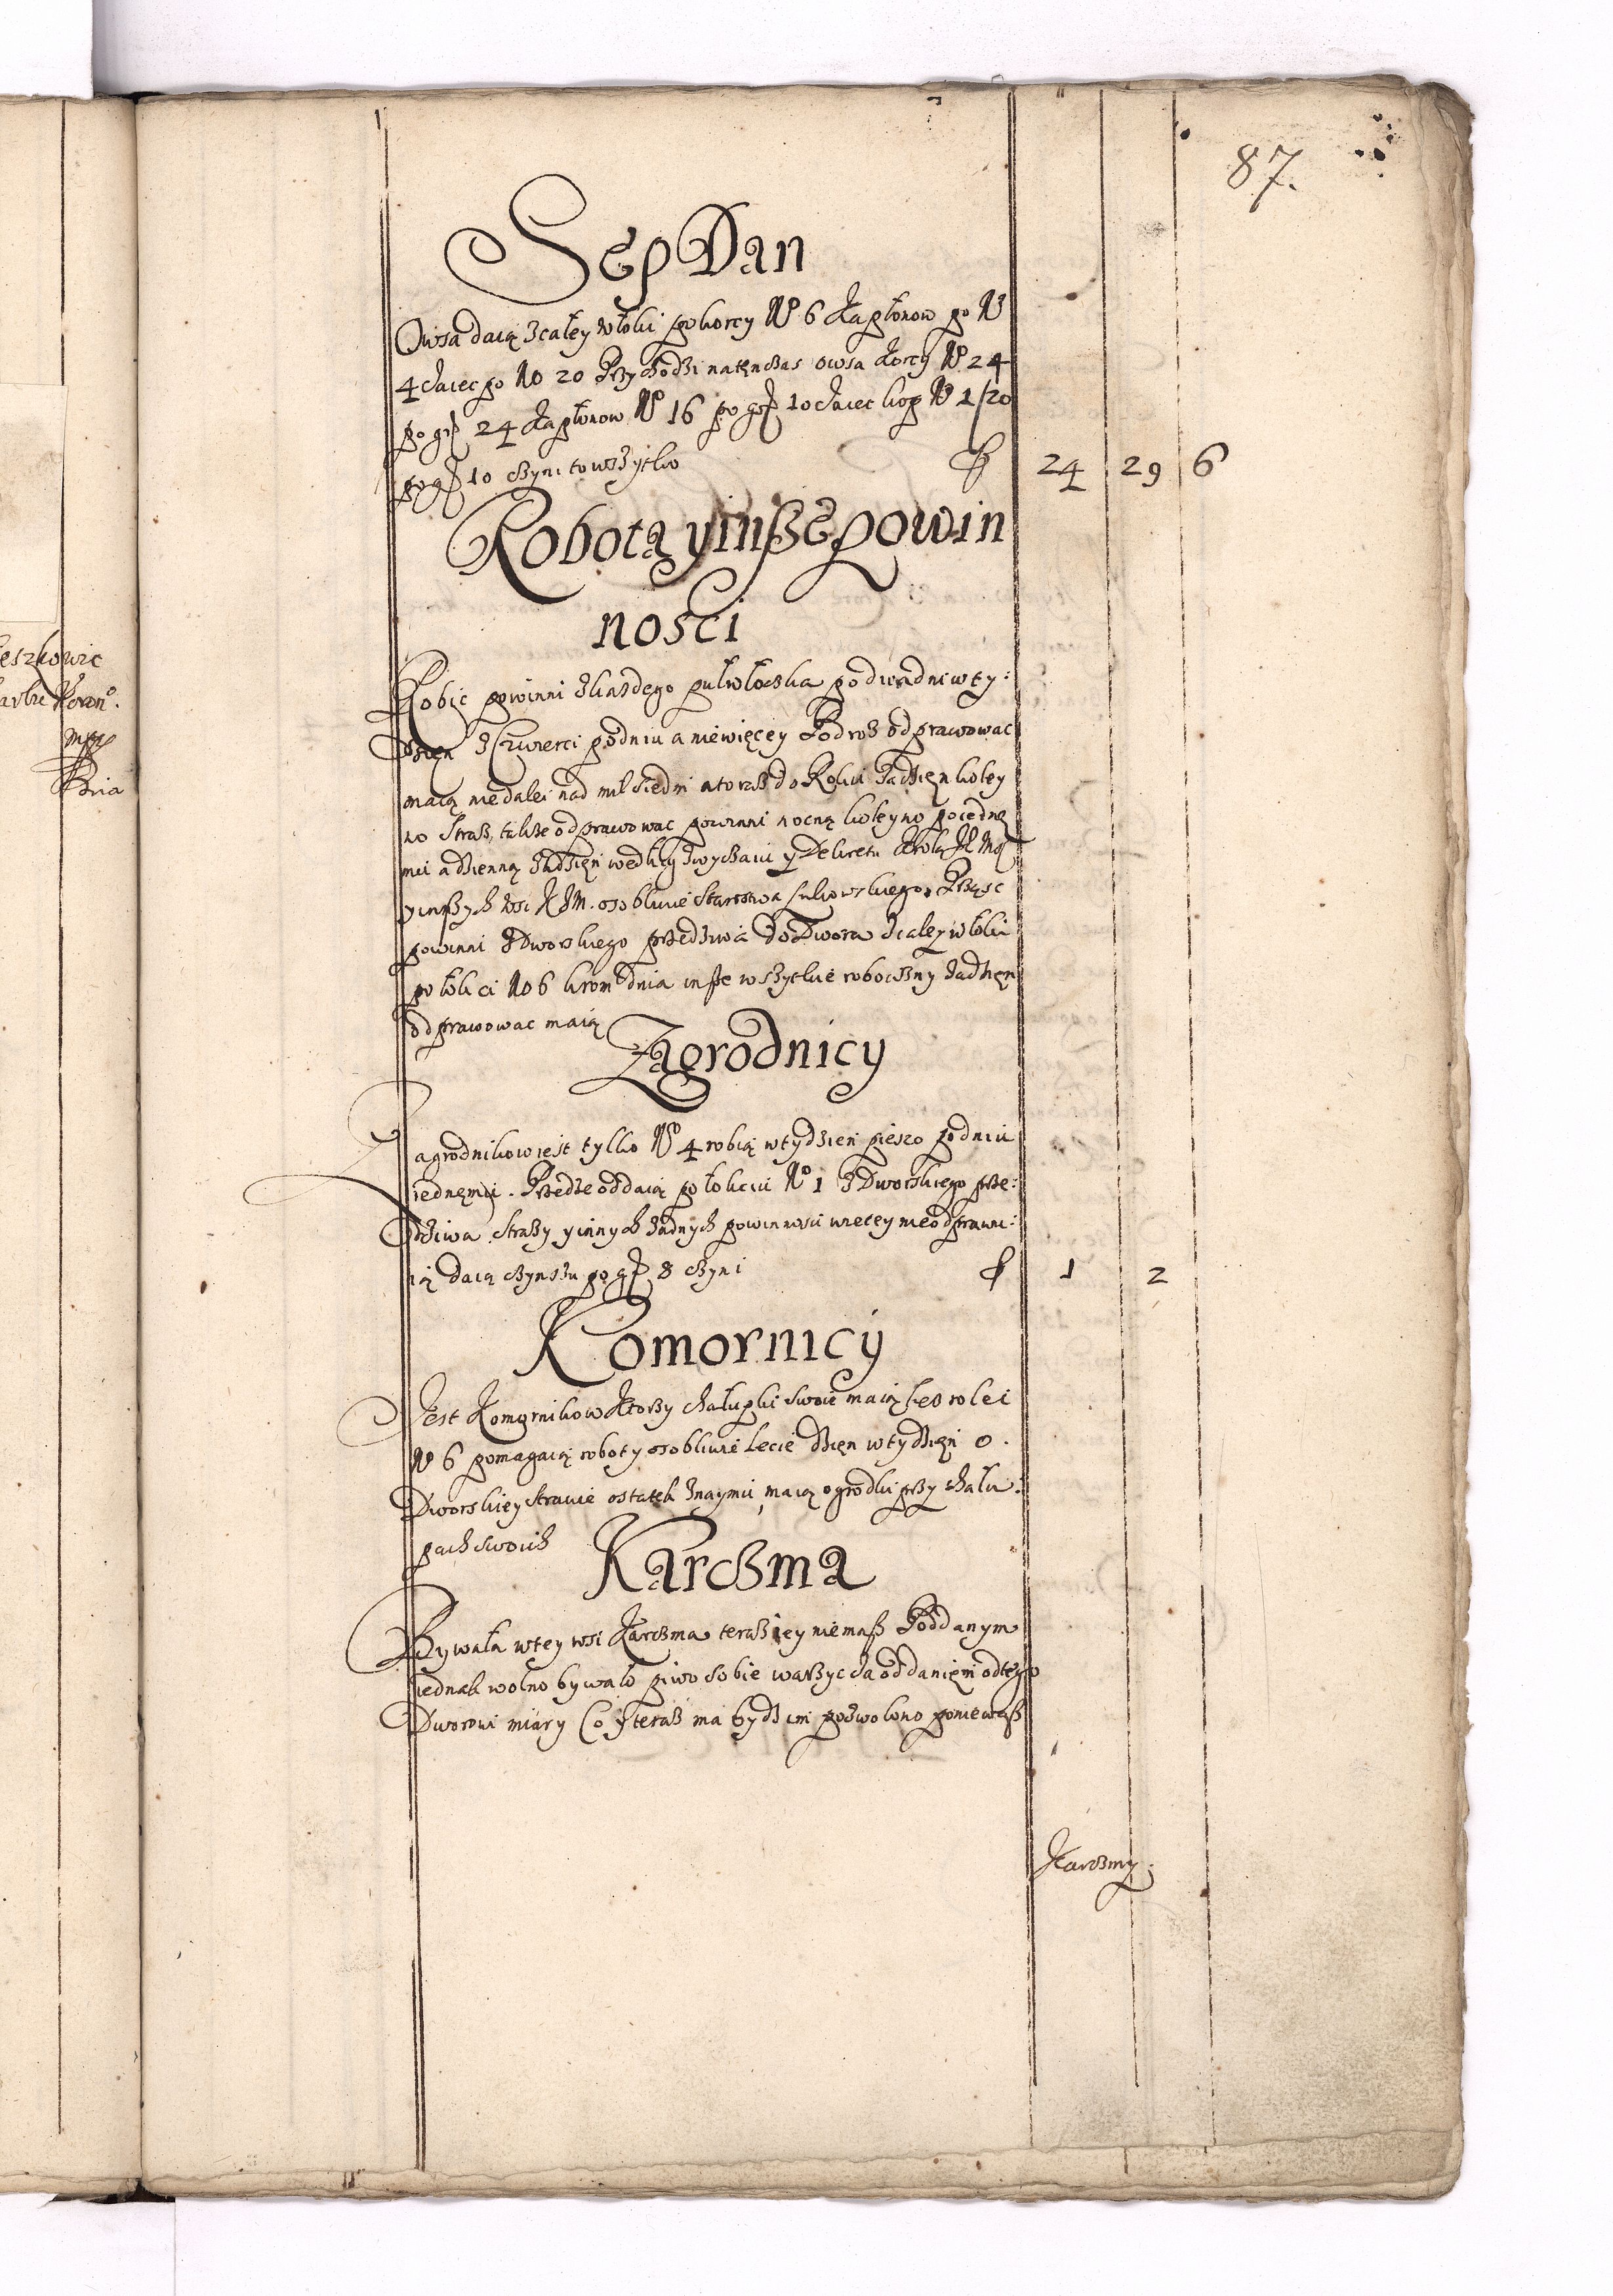 87.
Sep Dan
Owsa daią z całey włoki po korcy No 6 Kapłonow po No
4 Jaiec po No 20 Przychodzi natenczas owsa Korcy No 24
po gr 24 Kapłonow No 16 po gr 10 Jaiec kop No 1/20
po gr 10 czyni to wszytko fl 24 29 6
Robota y insze powin
nosci
Robic powinni z kazdego pułwłoczka po dwa dni w ty:
dzien z czwierci po dniu a niewięcey Podroz odprawowac
maią niedalei nad mil siedm a to raz do Roku za dzien koley
no Straz, takze odprawowac powinni nocną koleyno po iedne
mu a dzienną za dzien według zwyczaiu y Dekretu
y inszych wsi K J M. osobliwie Starostwa Łukowskiego. Prząsc
powinni z Dworskiego przedziwa do Dwora z całey włoki
po łokci No 6 krom dnia insze wszytkie robocizny za dzien
odprawowac maią
Zagrodnicy
Zagrodnikow iest tylko No 4 robią w tydzien pieszo po dniu
iednęmu. Przedze oddaią po łokciu No 1 z Dworskiego prze:
dziwa Strazy y innych zadnych powinnosci wiecey nieodprawu:
ią daią czynszu po gr 8 czyni fl 1 2
Komornicy
Jest Komornikow Ktorzy chałupki swoie maią bes rolei
No 6 pomagaią roboty osobliwie Lecie dzien w tydzien o
Dworskiey strawie ostatek znaymu, maią ogrodki przy chału:
pach swoich
Karczma
Bywała w tey wsi Karczma teraz iey niemasz Poddanym
iednak wolno bywało piwo sobie warzyc za oddaniem od tego
Dworowi miary Co y teraz ma bydz im pozwolono poniewasz
Karczmy
eszkowic
mpp